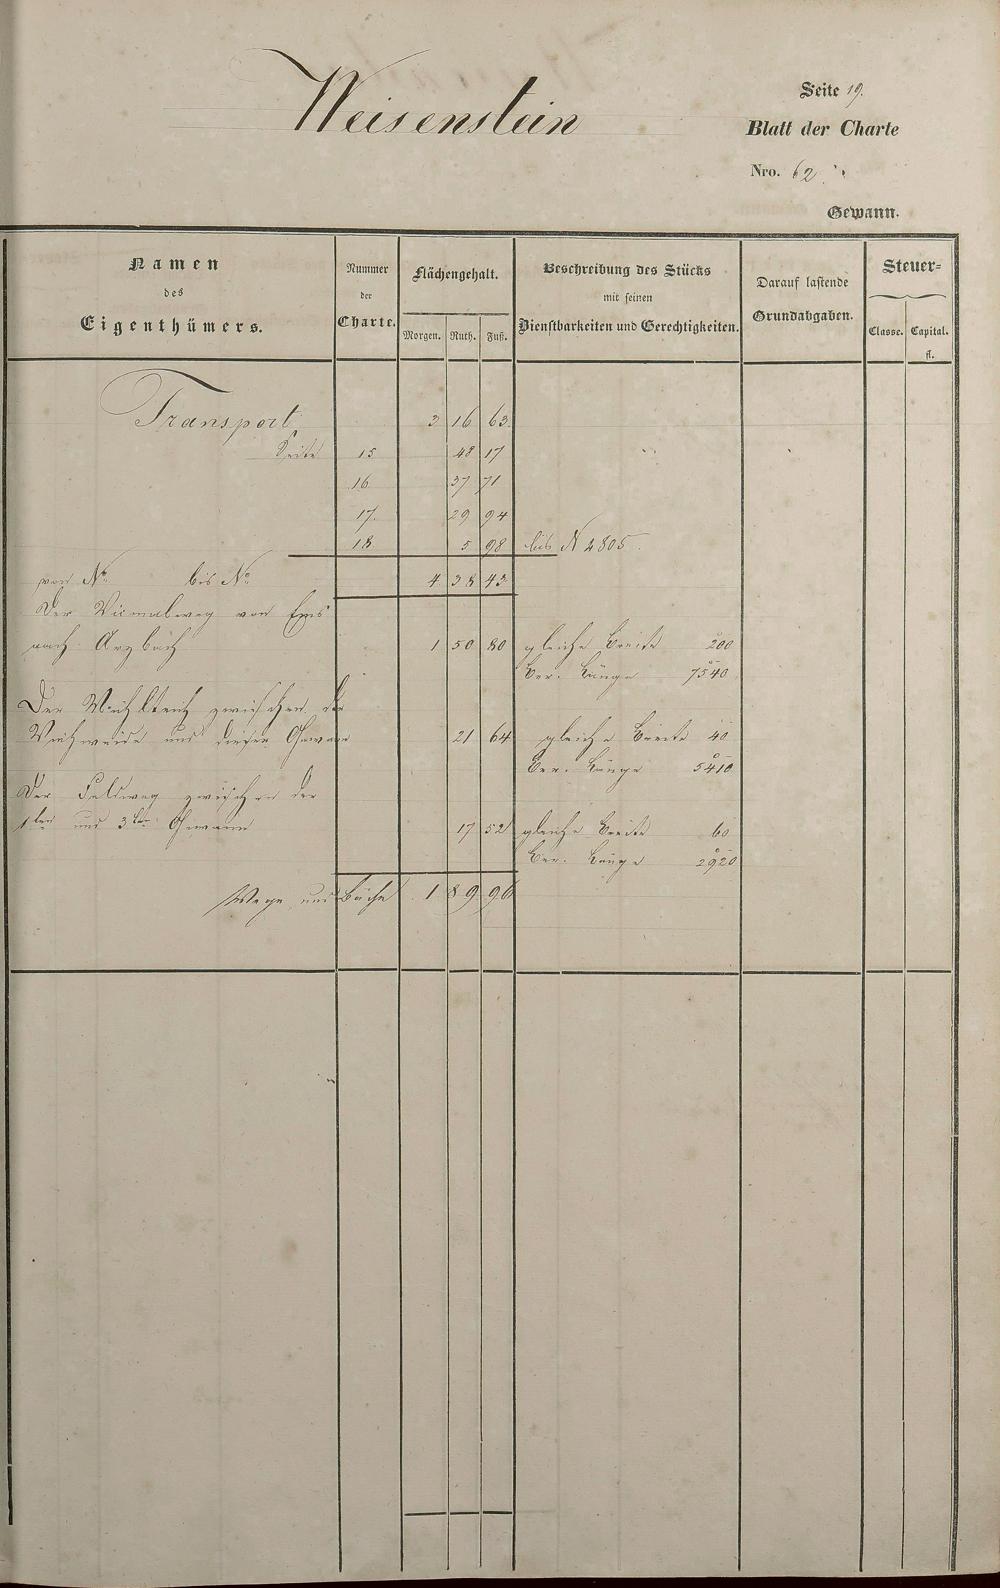 Weisenstein
Seite 19.
Blatt der Charte
Nro. 62
Gewann.
Namen
des
Eigenthümers.
Nummer
der
Charte.
Flächengehalt.
Morgen. Ruth. Fuß.
Beschreibung des Stücks
mit seinen
Dienstbarkeiten und Gerechtigkeiten.
Darauf lastende
Grundabgaben.
Steuer=
Classe. Capital.
fl.
Transport 3 16 63
Seite 15 48 17
16 37 71
17. 29 94
18 5 98 bis N 2805.
von No. bis No. 4 38 43
Der Vicinalweg von Ems
nach Arzbach 1 50 80 gleiche Breite 200
Ber. Länge 7540
Der zwischen der
Viehweide und dieser Gewann 21 64 gleiche Breite 40
Ber. Länge 5410
Der Feldweg zwischen der
1ten und 3ten Gewann 17 52 gleiche Breite 60
Ber. Länge 2920
Wege und Bäche 1 89 96